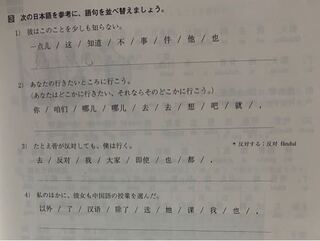 3 次の日本語を参考に、語句を並べ替えましょう。
1) 彼はこのことを少しも知らない。
一点儿 / 这 / 知道 / 不 / 事 / 件 / 他 / 也
2) あなたの行きたいところに行こう。
(あなたはどこかに行きたい、それならそのどこかに行こう。)
你 / 咱们 / 哪儿 / 哪儿 / 去 / 去 / 想 / 吧 / 就 / ,
3) たとえ皆が反対しても、僕は行く。
* 反対する:反对 fǎnduì
去 / 反对 / 我 / 大家 / 即使 / 也 / 都 / ,
4) 私のほかに、彼女も中国語の授業を選んだ。
以外 / 了 / 汉语 / 除了 / 选 / 她 / 课 / 我 / 也 / ,